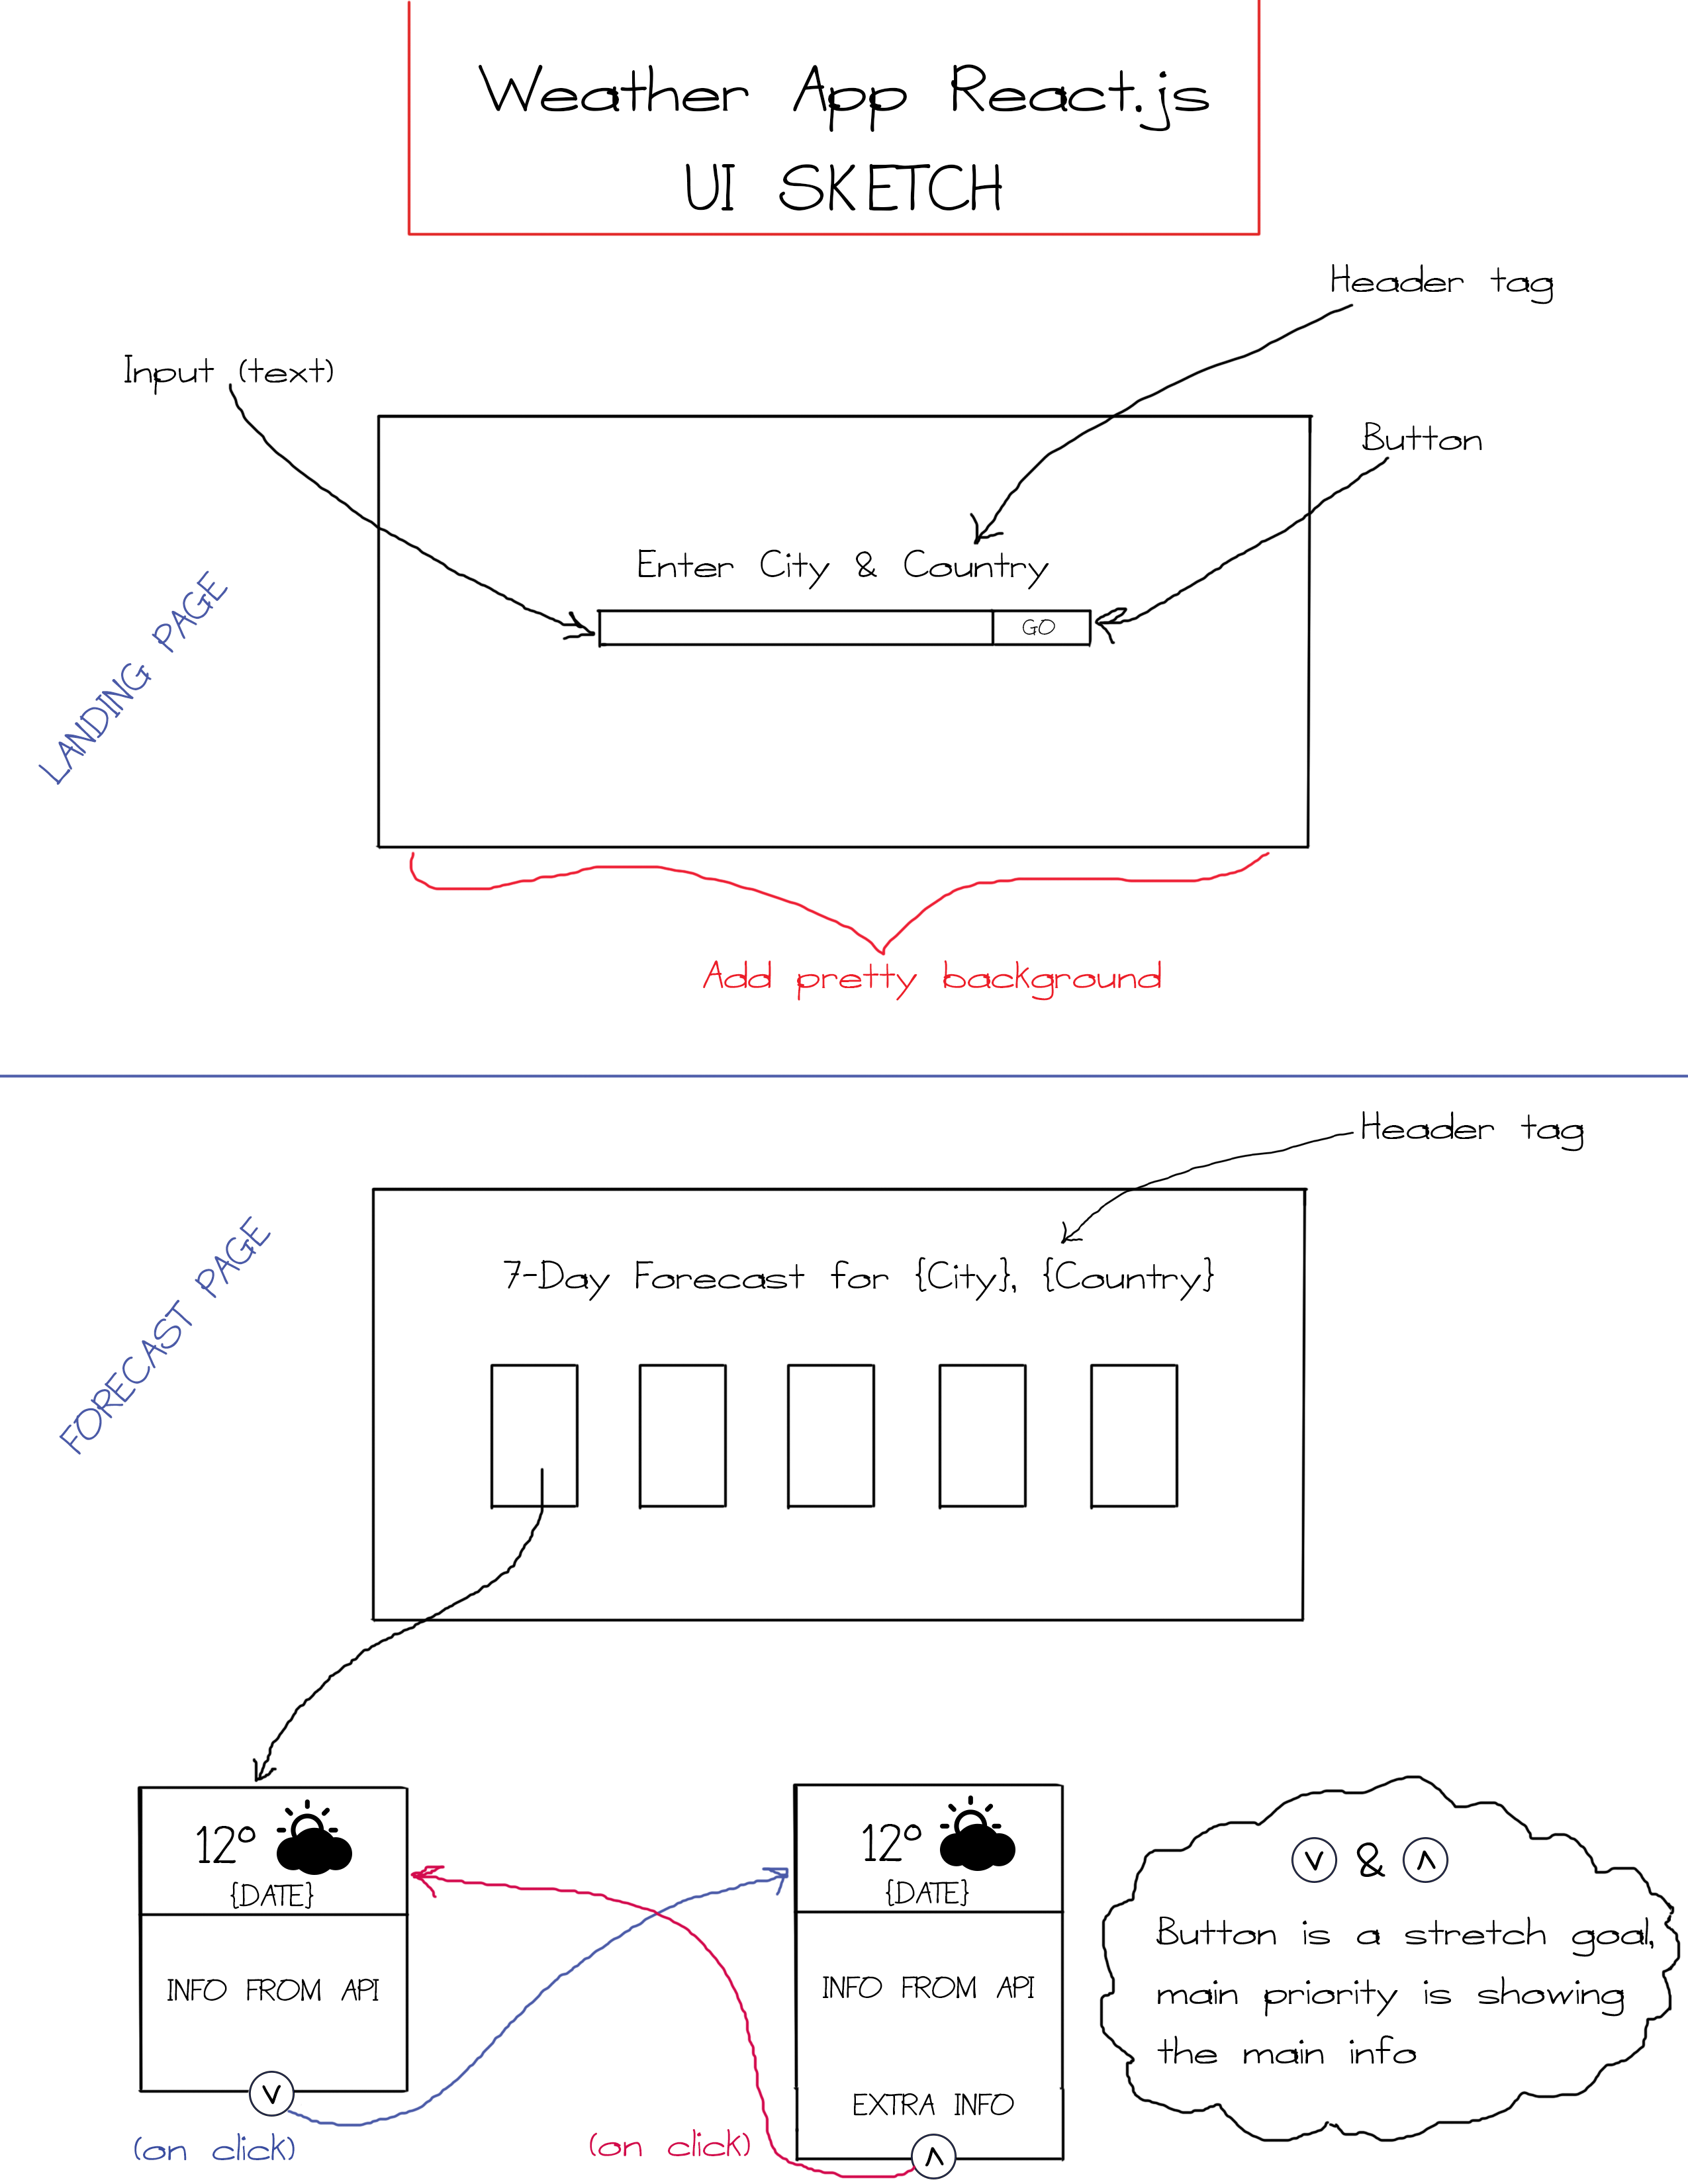 Weather App React.js
UI SKETCH
Header tag
Input (text)
Button
Enter City & Country
GO
LANDING PAGE
Add pretty background
Header tag
FORECAST PAGE
7-Day Forecast for {City}, {Country}
12°
{DATE}
INFO FROM API
V
(on click)
12°
{DATE}
INFO FROM API
EXTRA INFO
(on click)
Λ
V & Λ
Button is a stretch goal,
main priority is showing
the main info